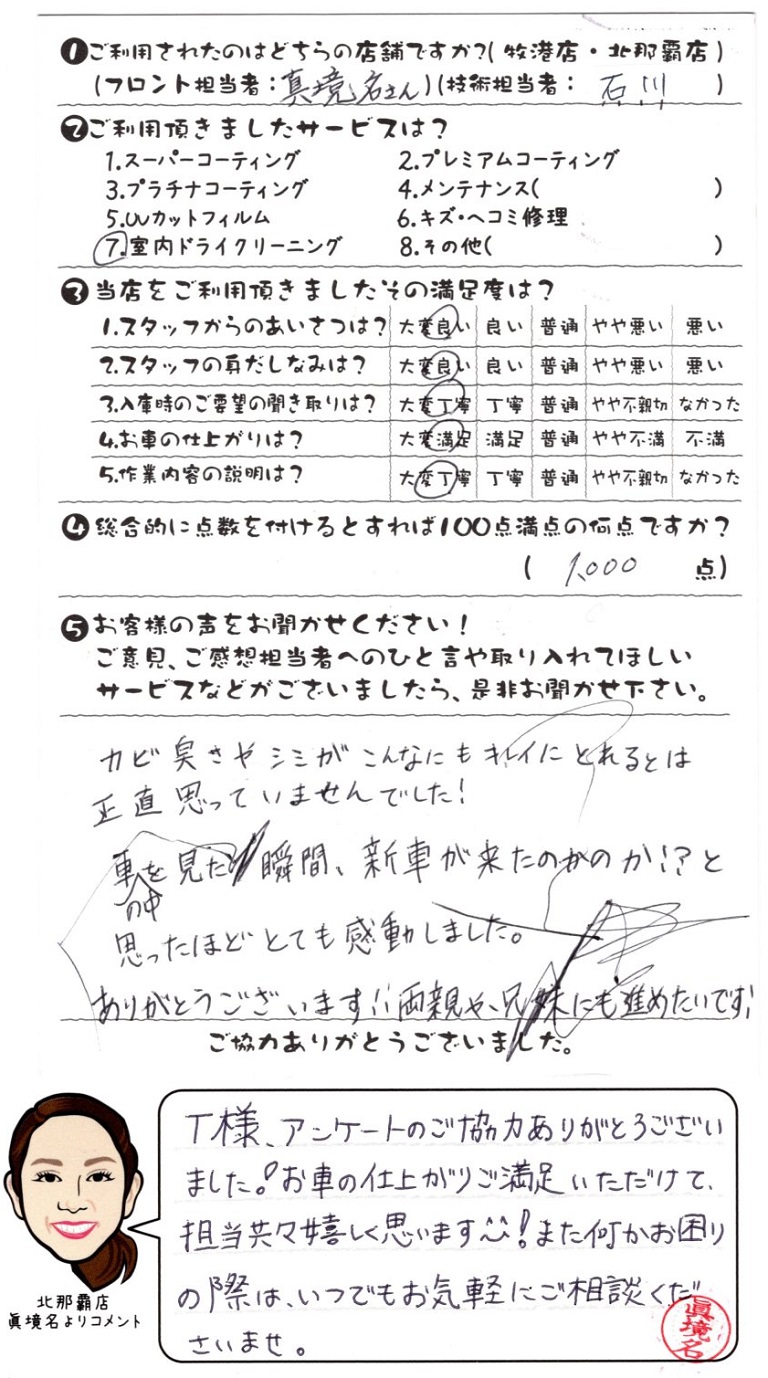 ❶ご利用されたのはどちらの店舗ですか?(牧港店・北那覇店)
(フロント担当者:真境名さん)(技術担当者: 石川 )
❷ご利用頂きましたサービスは?
1.スーパーコーティング 2.プレミアムコーティング
3.プラチナコーティング 4.メンテナンス( )
5.UVカットフィルム 6.キズ・ヘコミ修理
7.室内ドライクリーニング 8.その他( )
❸当店をご利用頂きましたその満足度は?
1.スタッフからのあいさつは? 大変良い 良い 普通 やや悪い 悪い
2.スタッフの身だしなみは? 大変良い 良い 普通 やや悪い 悪い
3.入庫時のご要望の聞き取りは? 大変丁寧 丁寧 普通 やや不親切 なかった
4.お車の仕上がりは? 大変満足 満足 普通 やや不満 不満
5.作業内容の説明は? 大変丁寧 丁寧 普通 やや不親切 なかった
❹総合的に点数を付けるとすれば100点満点の何点ですか?
( 1,000 点)
❺お客様の声をお聞かせください!
ご意見、ご感想担当者へのひと言や取り入れてほしい
サービスなどがございましたら、是非お聞かせ下さい。
カビ臭さやシミがこんなにもキレイにとれるとは
正直思っていませんでした!
車の中を見た瞬間、新車が来たのかのか!?と
思ったほどとても感動しました。
ありがとうございます!!両親や、兄妹にも進めたいです!
ご協力ありがとうございました。
T様、アンケートのご協力ありがとうござい
ました!お車の仕上がりご満足いただけて、
担当共々嬉しく思います!また何かお困り
の際は、いつでもお気軽にご相談くだ
さいませ。
北那覇店
眞境名よりコメント
眞境名